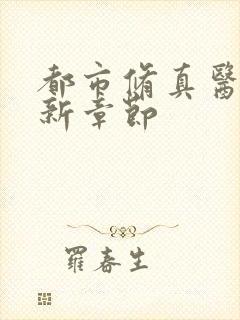 都市脩真醫
新章節
羅春生